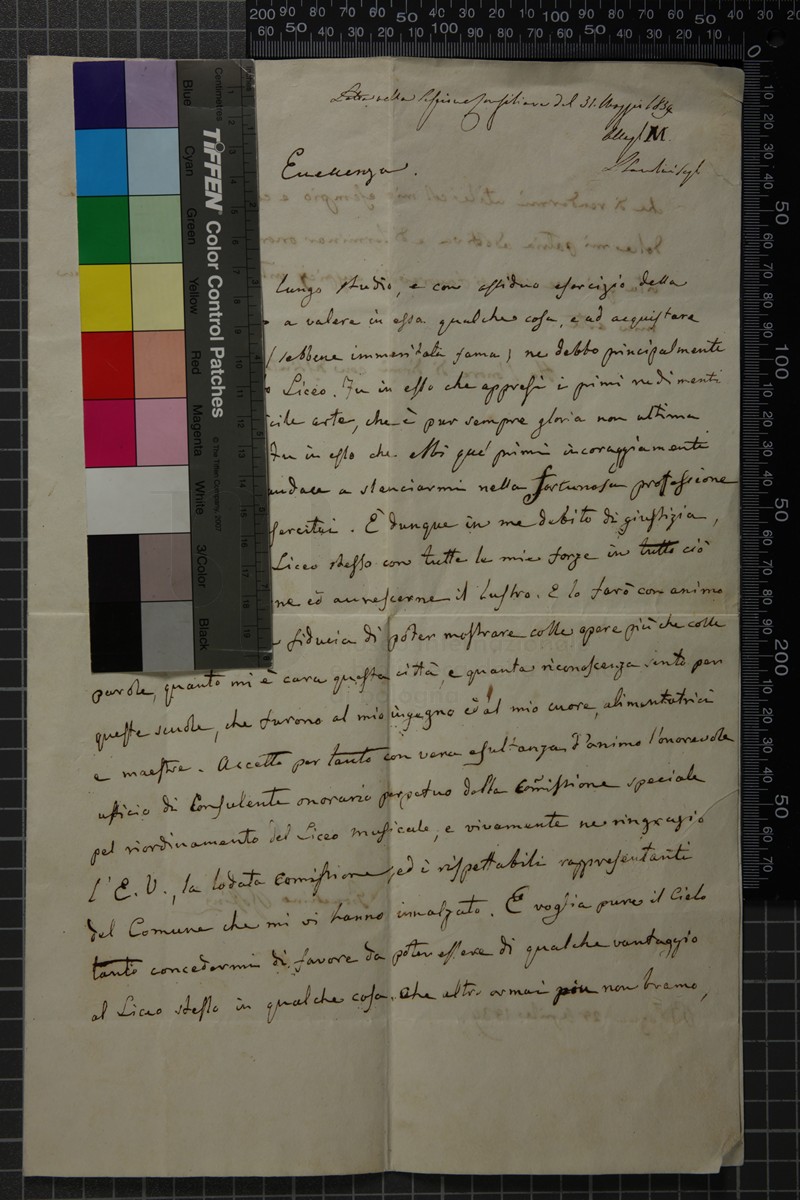 Letta nella Sessione Consigliare del 31. Maggio 1839
Alleg. M
Eccellenza.
lungo studio, e con assiduo esercizio della
a valere in essa qualche cosa, e ad acquistare
(sebbene immeritata fama) ne debbo principalmente
Liceo. Fu in esso che appresi i primi rudimenti
cile arte, che è pur sempre gloria non ultima
Fu in esso che ebbi que' primi incoraggiamenti
audace a slanciarmi nella fortunosa professione
sercitai. È dunque in me debito di giustizia,
Liceo stesso con tutte le mie forze in tutto ciò
ne ed accrescerne il lustro. E lo farò con animo
fiducia di poter mostrare colle opere più che colle
parole, quanto mi è cara questa città, e quanta riconoscenza sento per
queste scuole, che furono al mio ingegno ed al mio cuore, alimentatrici
e maestre. Accetto per tanto con vera esultanza d'animo l'onorevole
ufficio di Consulente onorario perpetuo della Com̃issione speciale
pel riordinamento del Liceo musicale, e vivamente ne ringrazio
l'E. V., la lodata Comissione, ed i rispettabili rappresentanti
del Comune che mi vi hanno innalzato. E voglia pure il Cielo
tanto concedermi di favore da poter essere di qualche vantaggio
al Liceo stesso in qualche cosa. Che altro ormai piu non bramo,